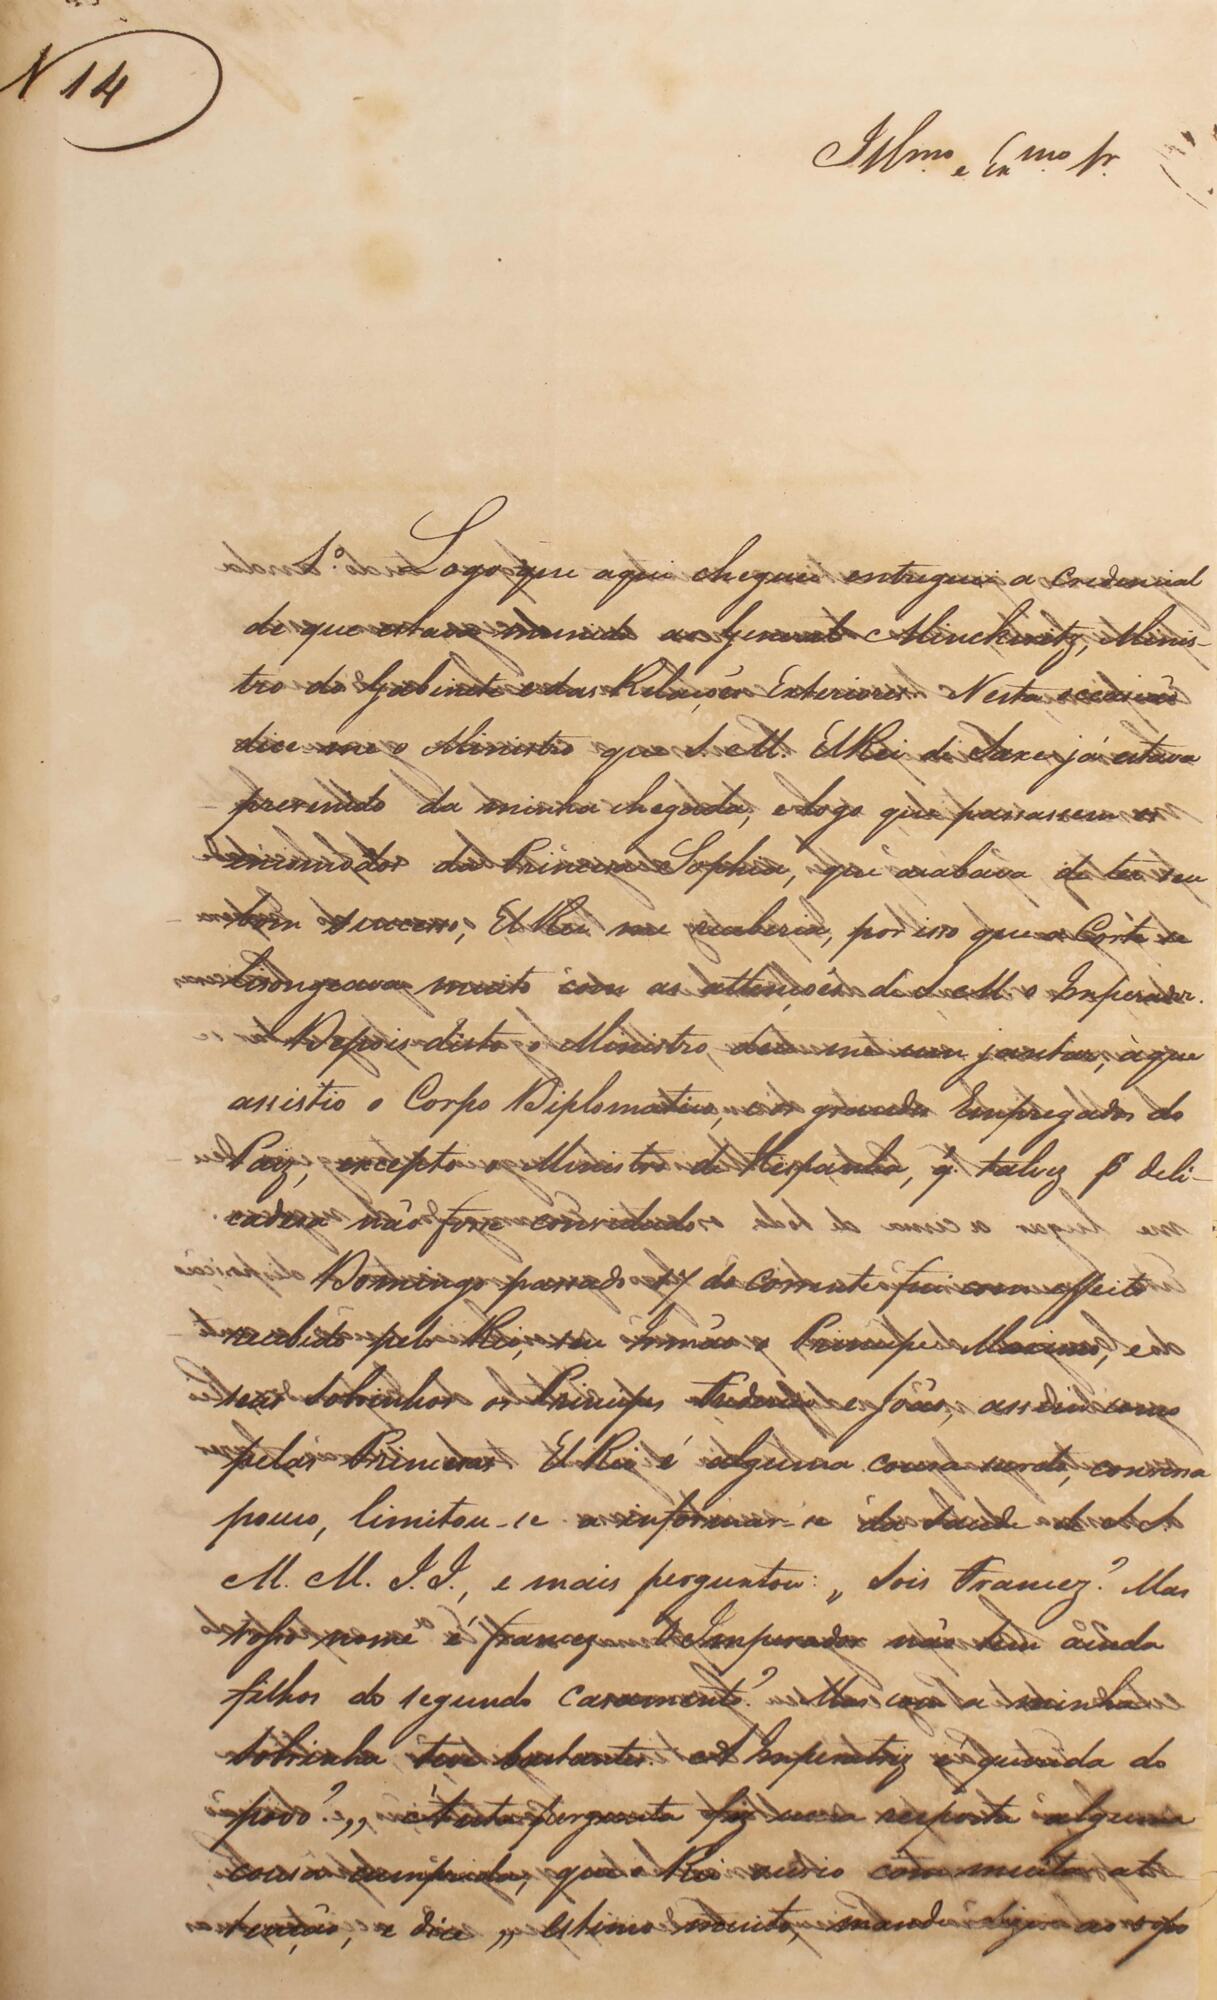 N 14
Illmo. e Exmo. Sr.
1º. Logo que aqui cheguei entreguei a credencial
de que estava munido ao General Minckwitz, Minis-
tro do Gabinete e das Relações Exteriores. Nesta occasião
dice-me o Ministro que S. M. ElRei de Saxe já estava
prevenido da minha chegada, e logo que passassem os
incomodos da Princesa Sophia, que acabava de ter seu
bom successo, ElRei me receberia, por isso que a Côrte se
lisongeava muito com as attenções de S. M. o Imperador.
Depois disto o Ministro deu-me um jantar, à que
assistio o Corpo Diplomatico, e os grandes Empregados do
Paiz, excepto o Ministro de Hespanha, q̃ talvez pr deli-
cadeza não fosse convidado.
Domingo passado 17 do corrente fui com effeito
recebido pelo Rei, seu Irmão o Principe Maximo, e
seus Sobrinhos os Principes Frederico e João, assim como
pelas Princesas. ElRei é alguma cousa surdo, conversa
pouco, limitou-se a informar-se da saude de S. S.
M. M. I. I., e mais perguntou: „ Sois Francez? Mas
vosso nome é francez. O Imperador não tem ainda
filhos do segundo casamento? Mas com a minha
Sobrinha teve bastantes. A Imperatriz é querida do
povo? „ A esta pergunta fiz uma resposta alguma
cousa cumprida, que o Rei ouvio com muita at-
tenção, e dice „ Estimo muito, mandai dizer ao vosso